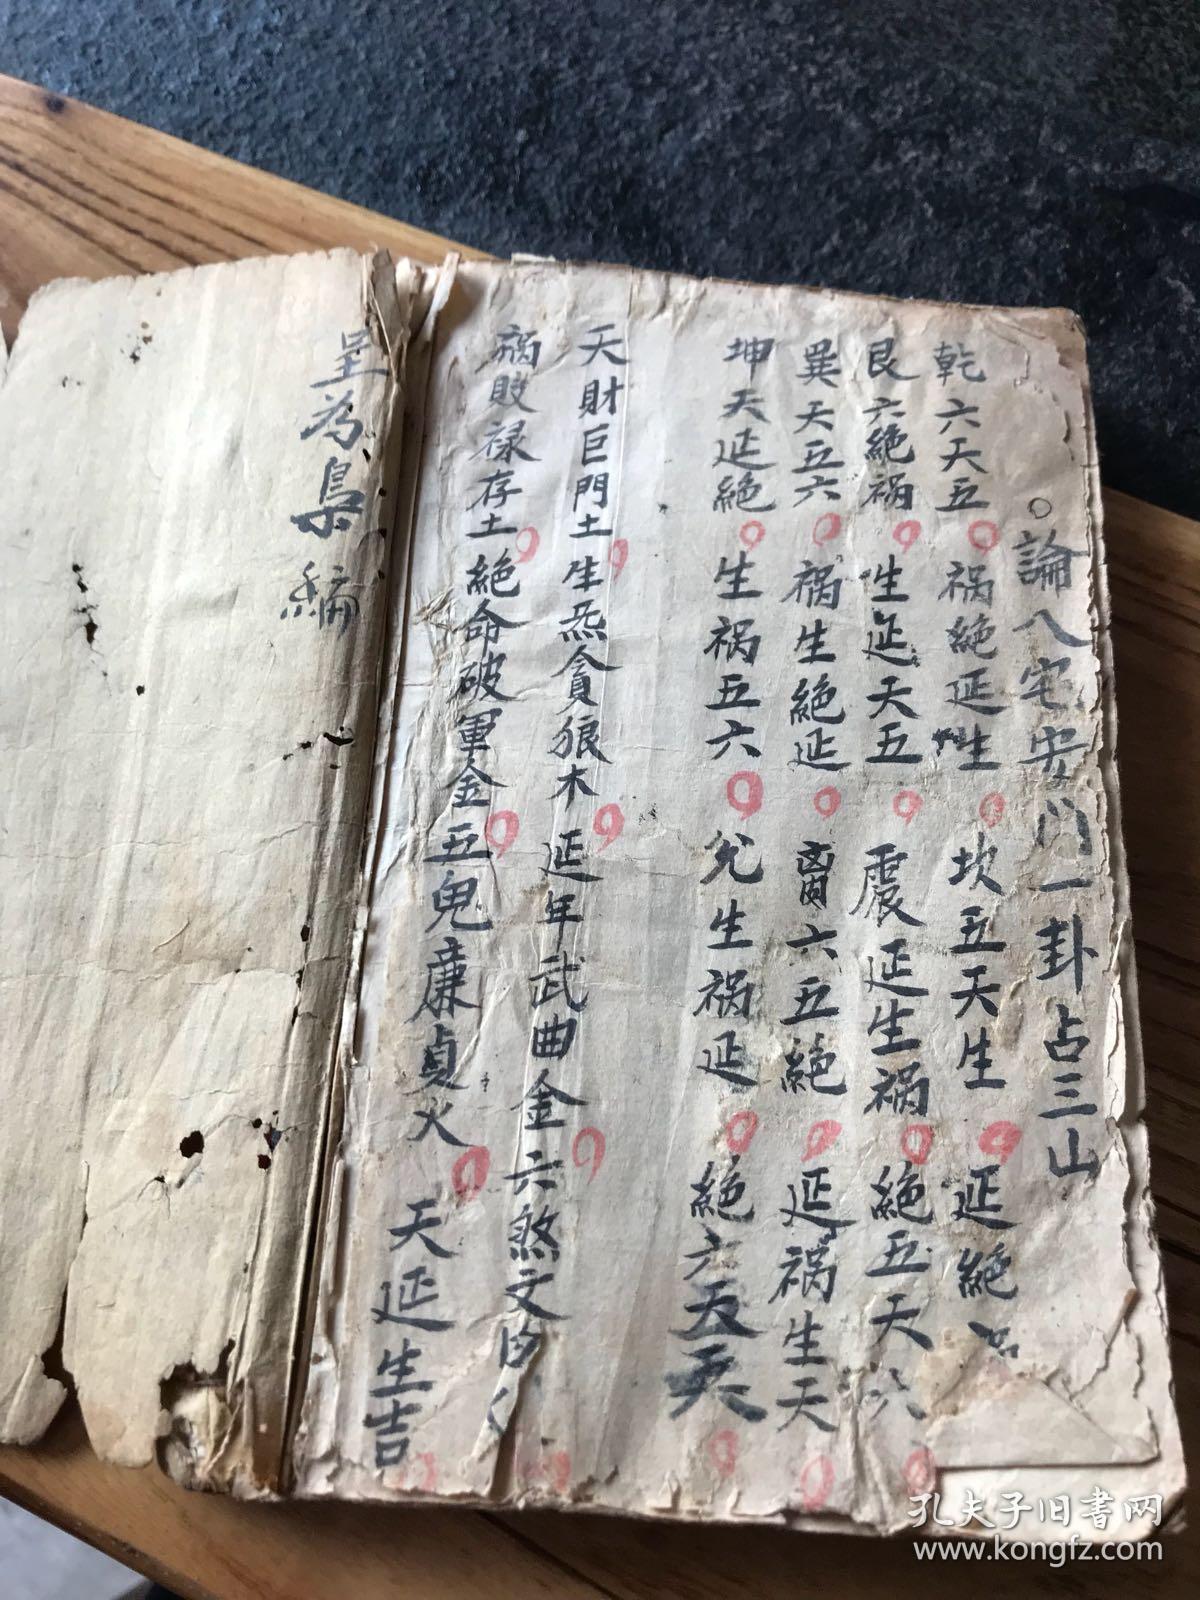 論八宅安门一卦占三山
乾六天五祸絕延生坎五天生延絕
艮六絕祸生延天五震延生祸絕五天六
巽天五六祸生絕延离六五絕延祸生天
坤天延絕生祸五六兊生祸延絕六五天
天財巨門土生炁貪狼木延年武曲金六煞文曲
祸敗禄存土絕命破軍金五鬼廉貞火天延生吉
呈为梟編
孔夫子旧書网
www.kongfz.com